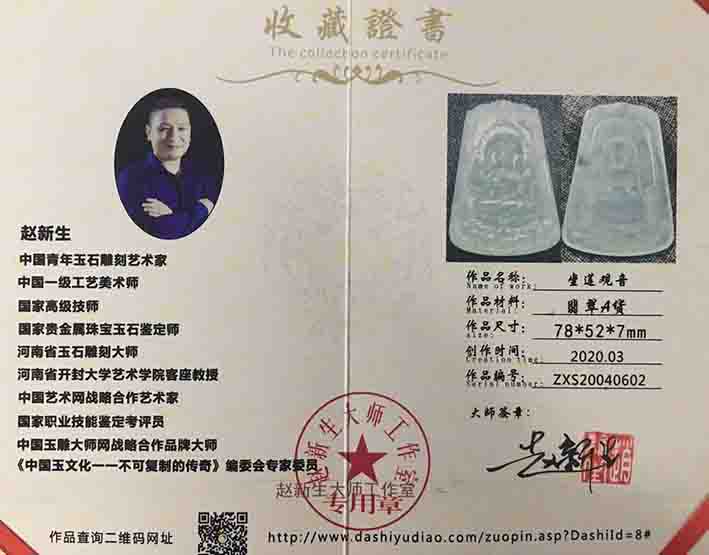 收藏證書
The collection certificate
赵新生
中国青年玉石雕刻艺术家
中国一级工艺美术师
国家高级技师
国家贵金属珠宝玉石鉴定师
河南省玉石雕刻大师
河南省开封大学艺术学院客座教授
中国艺术网战略合作艺术家
国家职业技能鉴定考评员
中国玉雕大师网战略合作品牌大师
《中国玉文化——不可复制的传奇》编委会专家委员
作品名称: 坐莲观音
Name of work:
作品材料: 翡翠A货
Material:
作品尺寸: 78*52*7mm
size:
创作时间: 2020.03
Creation time:
作品编号: ZXS20040602
Serial number:
大师签章:
赵新生
赵新生大师工作室
专用章
赵新生大师工作室
作品查询二维码网址
http://www.dashiyudiao.com/zuopin.asp?DashiId=8#